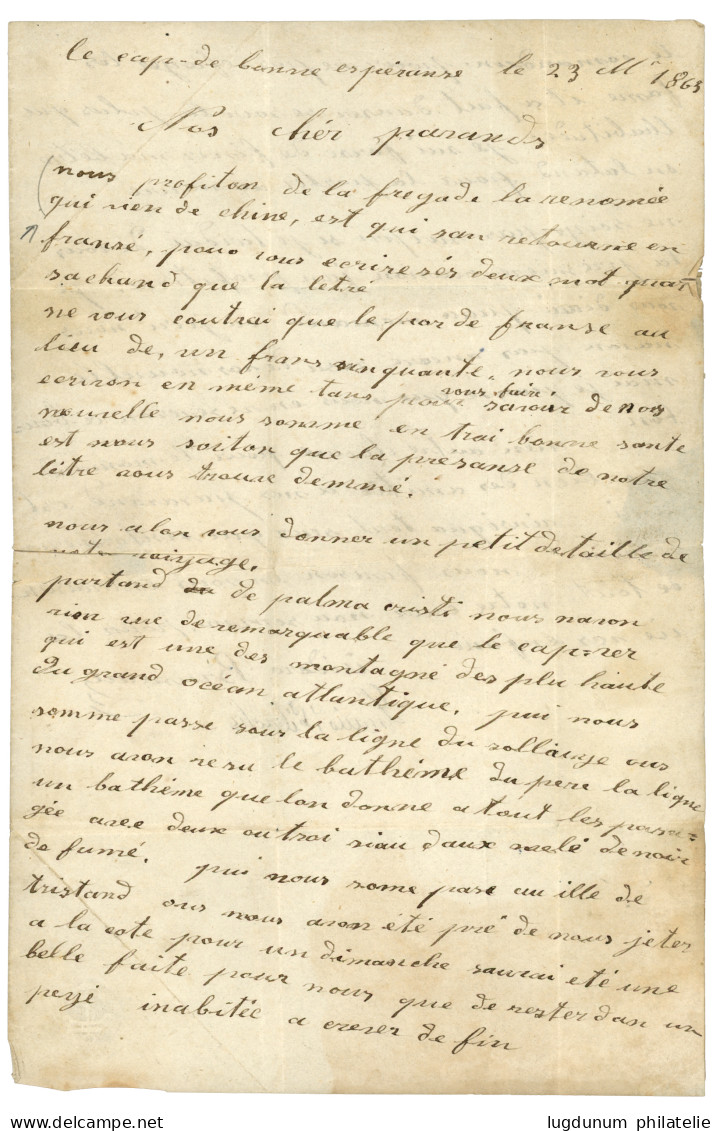 le cap-de bonne espéranse le 23 Mi 1865
Nos chér parands
nous profiton de la fregade la renomée
qui vien de chine, est qui san retourne en
fransé, pour vous ecrire sés deux mot
sachand que la létré
ne vous coutrai que le por de franse au
lieu de, un frans sinquante, nous vous
ecriron en méme tans pour vous fair savoir de nos
nouvelle nous somme en trai bonne sante
est nous soiton que la présanse de notre
létre vous trouve demmé.
nous alon vous donner un petit detaille de
voiyage.
partand de palma cristi nous navon
rien vue de remarquable que le
qui est une des montagné des plu haute
du grand océan atlantique, pui nous
somme passe sous la ligne du sollaige ous
nous avon resu le bathéme du pere la ligne
un bathéme que lon donne a tout les pasa=
gée avec deux ou troi siau daux melé de noir
de fumé. pui nous some pase au ille dé
tristand ous nous avon été pré de nous jeter
a la cote pour un dimanche saurai eté une
belle faite pour nous que de rester dan un
peyé inabitée a crever de fin
lugdunum philatelie